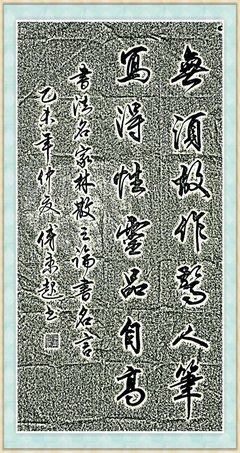 無須故作驚人筆
寫得性靈品自高
書法名家林散之論書名言
乙未年仲夏倚東起書